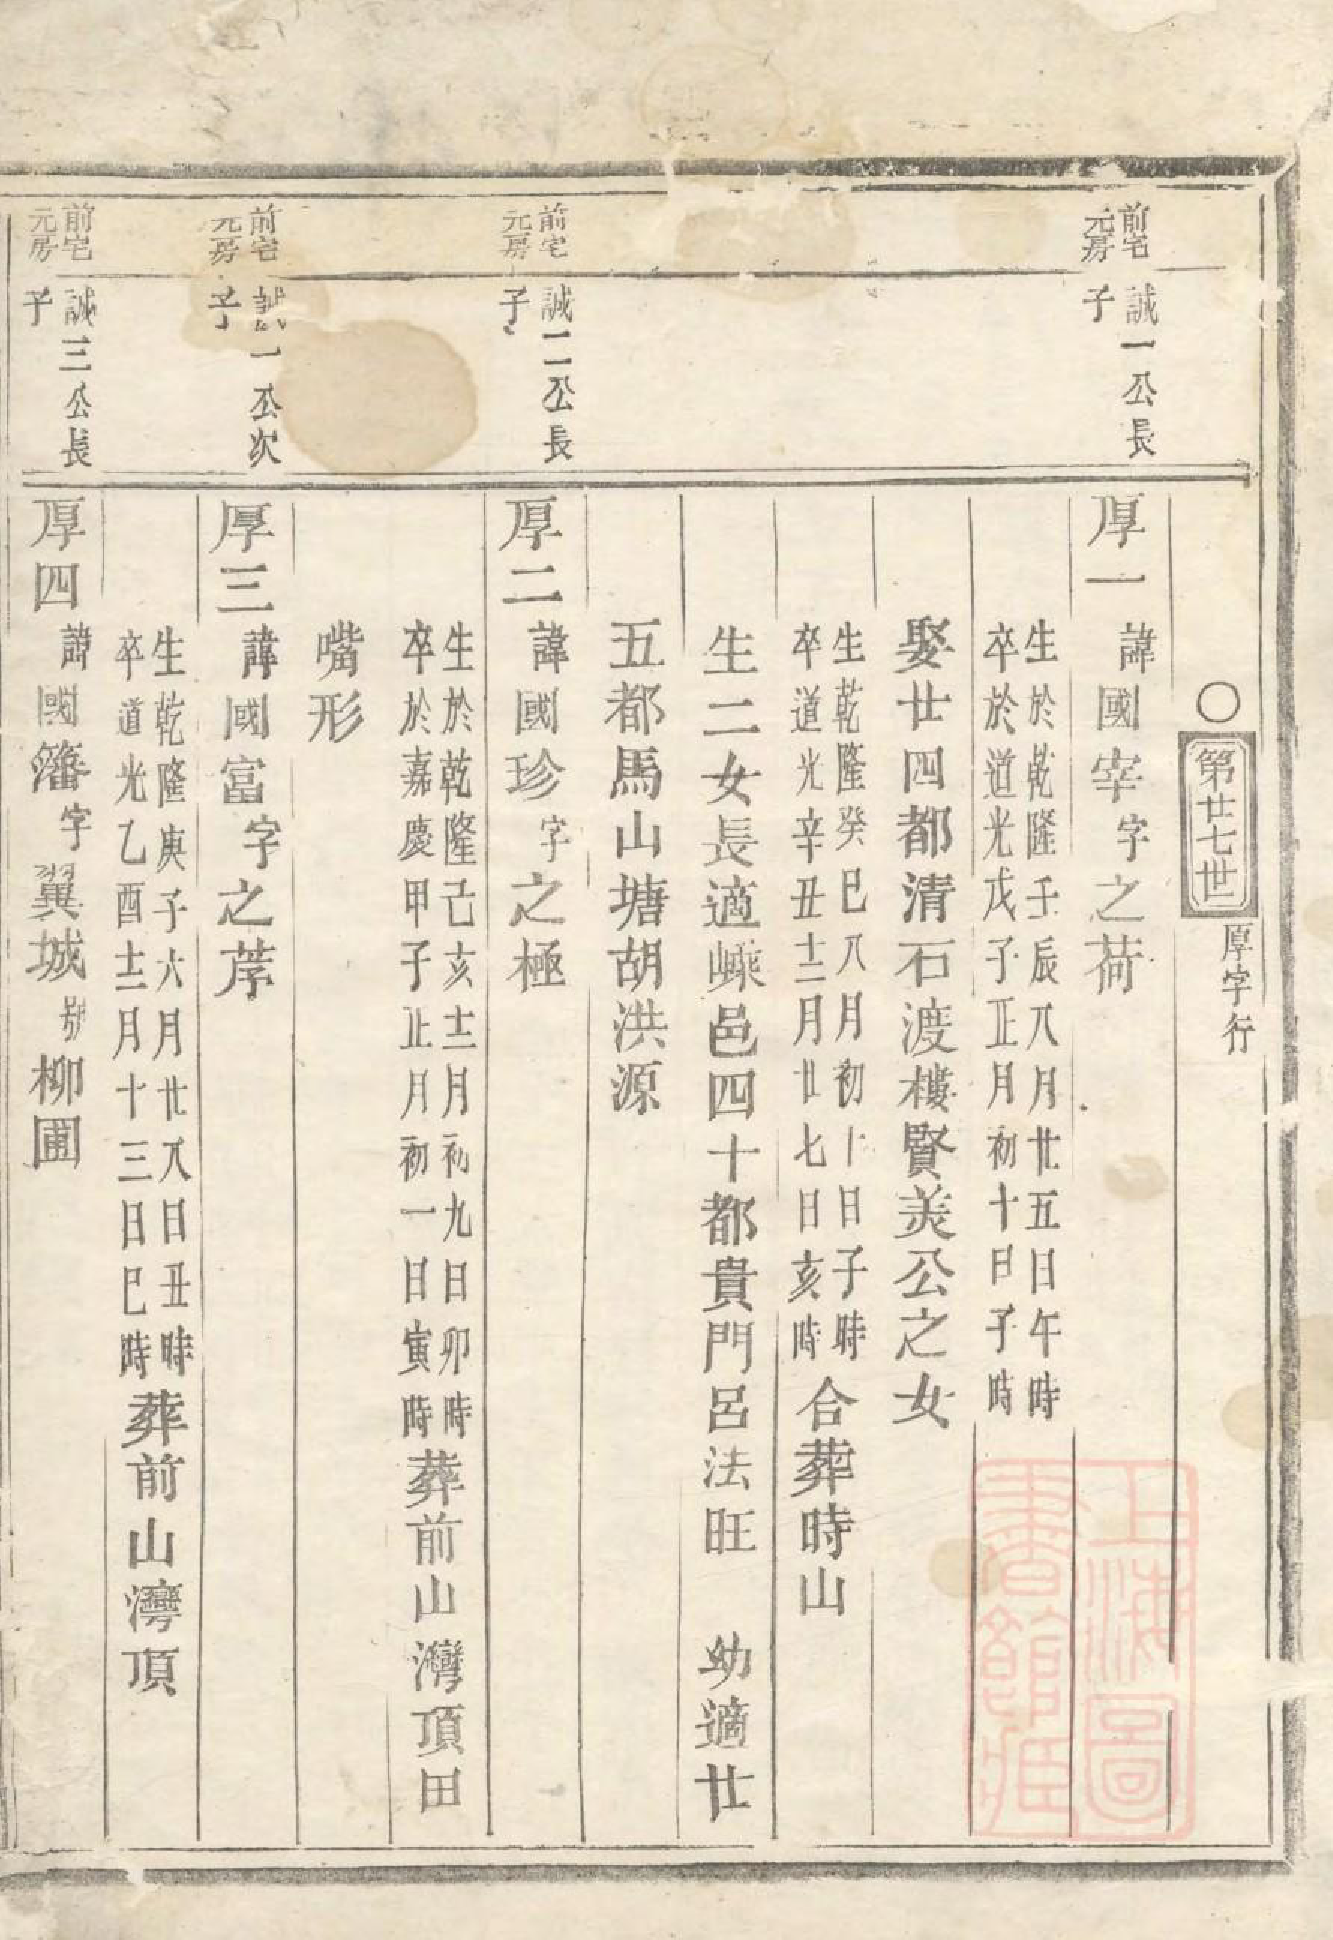 ○第廿七世 厚字行
前宅
元房
誠一公長
子
厚一 諱國宰字之荷
生於乾隆壬辰八月廿五日午時
卒於道光戊子正月初十日子時
娶廿四都清石渡樓賢美公之女
生乾隆癸巳八月初十日子時
卒道光辛丑十二月廿七日亥時
合葬時山
生二女長適嵊邑四十都貴門呂法旺 幼適廿
五都馬山塘胡洪源
前宅
元房
誠二公長
子
厚二 諱國珍字之極
生於乾隆己亥十二月初九日卯時
卒於嘉慶甲子正月初一日寅時
葬前山灣頂田
嘴形
前宅
元房
誠一公次
子
厚三 諱國富字之荐
生乾隆庚子六月廿八日丑時
卒道光乙酉十二月十三日巳時
葬前山灣頂
前宅
元房
誠三公長
子
厚四 諱國籓字翼城號柳圃
上海圖
書館藏